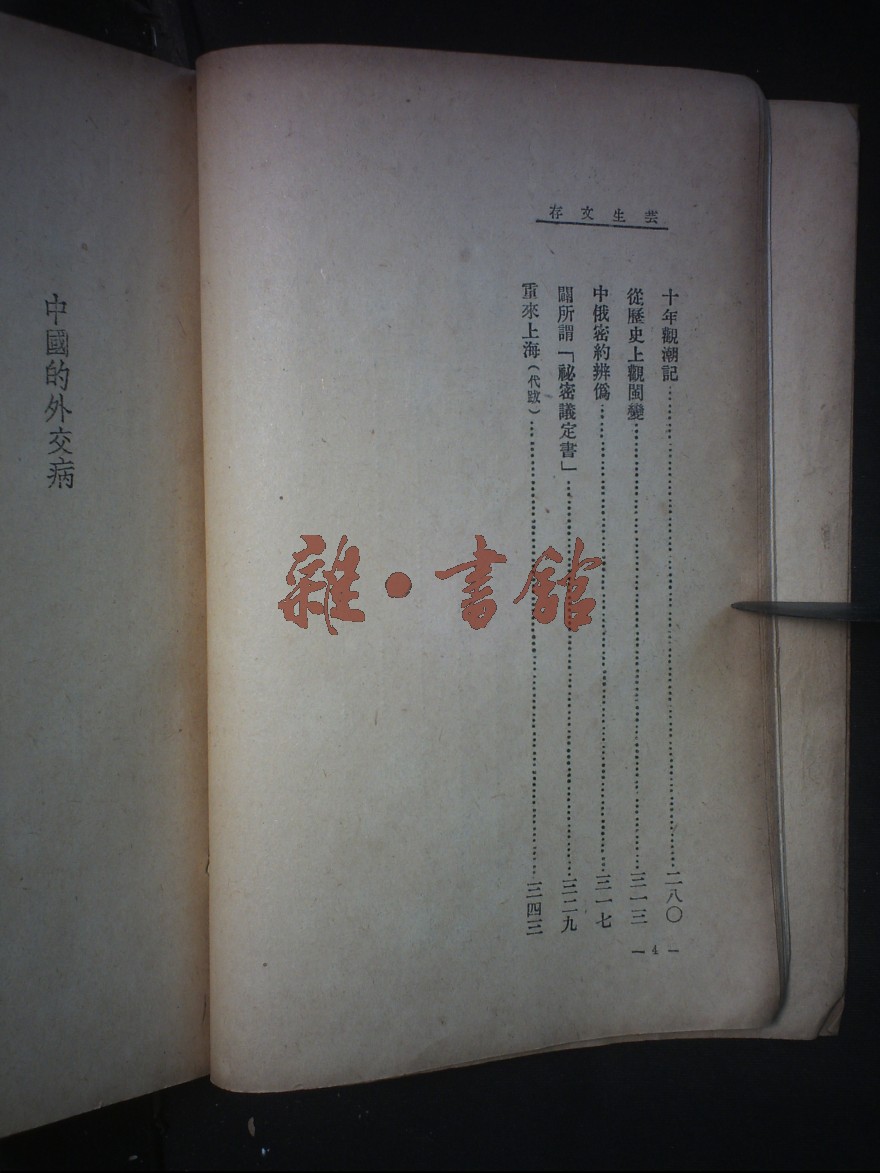 芸生文存
十年觀潮記……二八〇
從歷史上觀閩變……三一三
中俄密約辨僞……三一七
闢所謂「祕密議定書」……三二九
重來上海（代跋）……三四三
— 4 —
中國的外交病
雜·書館